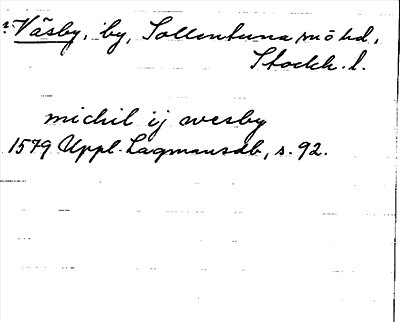 Väsby, by, Sollentuna sn o hd,
Stockh. l.
michil ij wesby
1579 Uppl. Lagmansdb, s. 92.